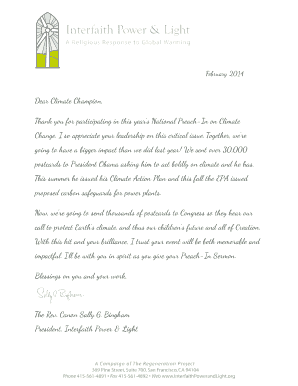 Interfaith Power & Light
A Religious Response to Global Warming
February 2014
Dear Climate Champion,
Thank you for participating in this year's National Preach-In on Climate
Change. I so appreciate your leadership on this critical issue. Together, we're
going to have a bigger impact than we did last year! We sent over 30,000
postcards to President Obama asking him to act boldly on climate and he has.
This summer he issued his Climate Action Plan and this fall the EPA issued
proposed carbon safeguards for power plants.
Now, we're going to send thousands of postcards to Congress so they hear our
call to protect Earth's climate, and thus our children's future and all of Creation.
With this kit and your brilliance, I trust your event will be both memorable and
impactful. I'll be with you in spirit as you give your Preach-In Sermon.
Blessings on you and your work,
Sally Bingham
The Rev. Canon Sally G. Bingham
President, Interfaith Power & Light
A Campaign of The Regeneration Project
369 Pine Street, Suite 700, San Francisco, CA 94104
Phone 415-561-4891 • Fax 415-561-4892 • Web www.InterfaithPowerandLight.org